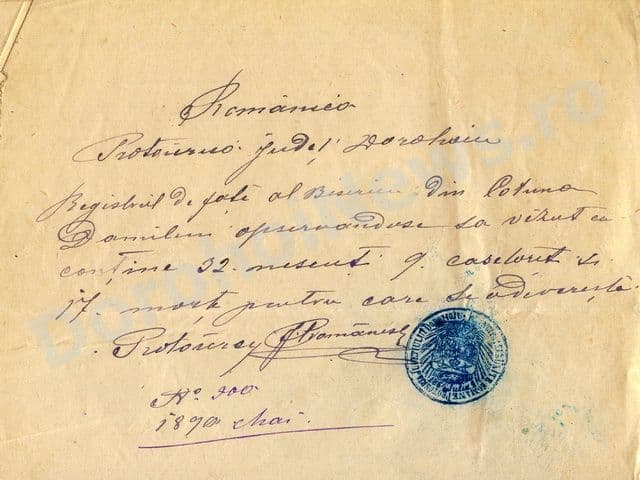 România
Protoereia Județ Dorohoiu
Registrul de față al Bisericei din Cotuna
Damileni opservandose sa văzut că
conține 32. nescuți 9. casetorit și
17. morți pentru care se adiverește.
Protoerey
No. 200
1890 Mai.
DorohoiNews.ro